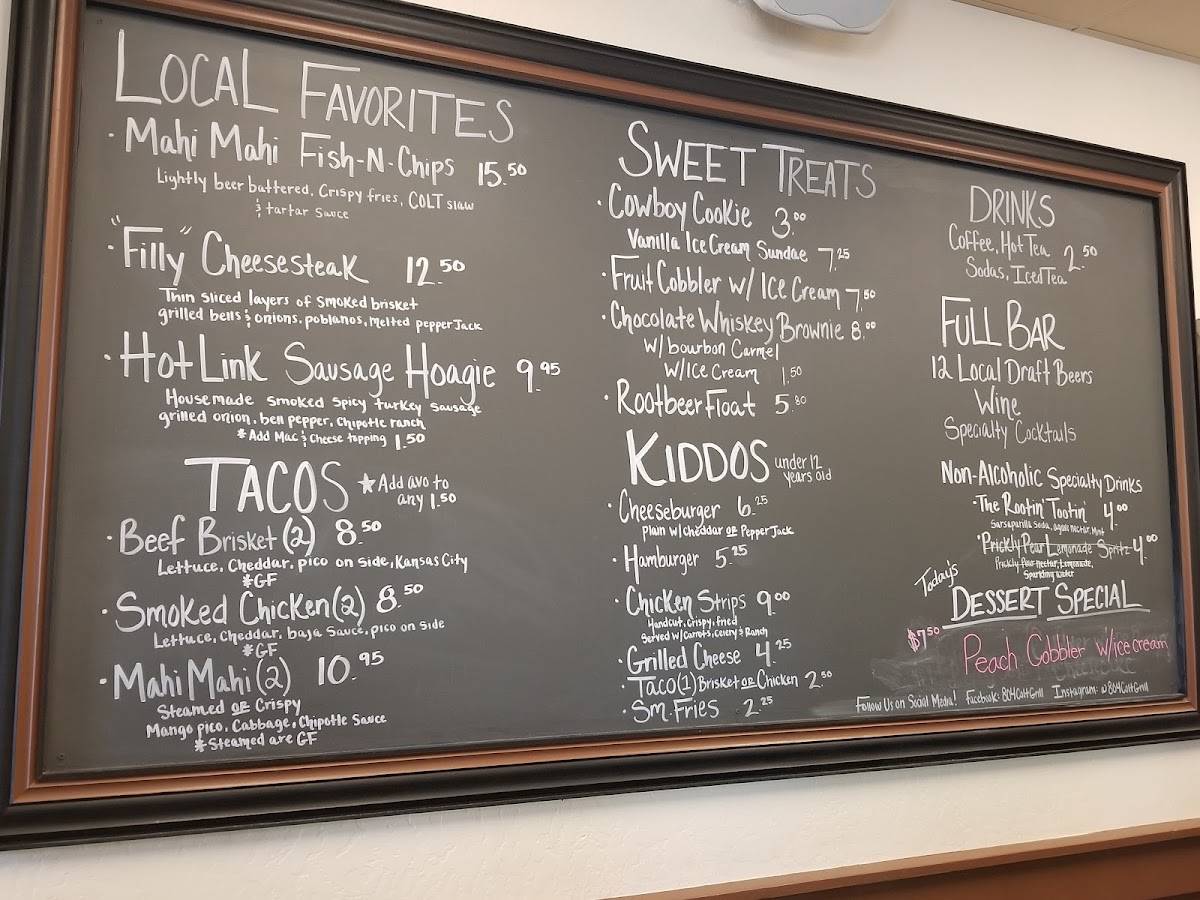 LOCAL FAVORITES
· Mahi Mahi Fish-N-Chips 15.50
Lightly beer battered, Crispy fries, COLT slaw
& tartar sauce
· "Filly" Cheesesteak 12.50
Thin sliced layers of smoked brisket
grilled bells & onions, poblanos, melted pepper Jack
· Hot Link Sausage Hoagie 9.95
Housemade smoked spicy turkey sausage
grilled onion, bell pepper, chipotle ranch
*Add Mac & Cheese topping 1.50
TACOS ★ Add avo to
any 1.50
· Beef Brisket (2) 8.50
Lettuce, Cheddar, pico on side, Kansas City
*GF
· Smoked Chicken (2) 8.50
Lettuce, Cheddar, baja sauce, pico on side
*GF
· Mahi Mahi (2) 10.95
Steamed OR Crispy
Mango pico, Cabbage, Chipotle Sauce
*Steamed are GF
SWEET TREATS
· Cowboy Cookie 3.00
Vanilla Ice Cream Sundae 7.25
· Fruit Cobbler w/ Ice Cream 7.50
· Chocolate Whiskey Brownie 8.00
w/ bourbon Carmel
w/ Ice Cream 1.50
· Rootbeer Float 5.80
KIDDOS under 12
years old
· Cheeseburger 6.25
Plain w/ cheddar OR Pepper Jack
· Hamburger 5.25
· Chicken Strips 9.00
Handcut, crispy, fried
Served w/ carrots, celery & Ranch
· Grilled Cheese 4.25
· Taco (1) Brisket OR Chicken 2.50
· Sm. Fries 2.25
DRINKS
Coffee, Hot Tea 2.50
Sodas, Iced Tea
FULL BAR
12 Local Draft Beers
Wine
Specialty Cocktails
Non-Alcoholic Specialty Drinks
· The Rootin' Tootin' 4.00
Sarsaparilla Soda, agave nectar, Mint
· Prickly Pear Lemonade Spritz 4.00
Prickly Pear nectar, Lemonade,
Sparkling water
Today's
DESSERT SPECIAL
$7.50 Peach Cobbler w/ice cream
Follow Us on Social Media! Facebook: 804ColtGrill Instagram: @804ColtGrill